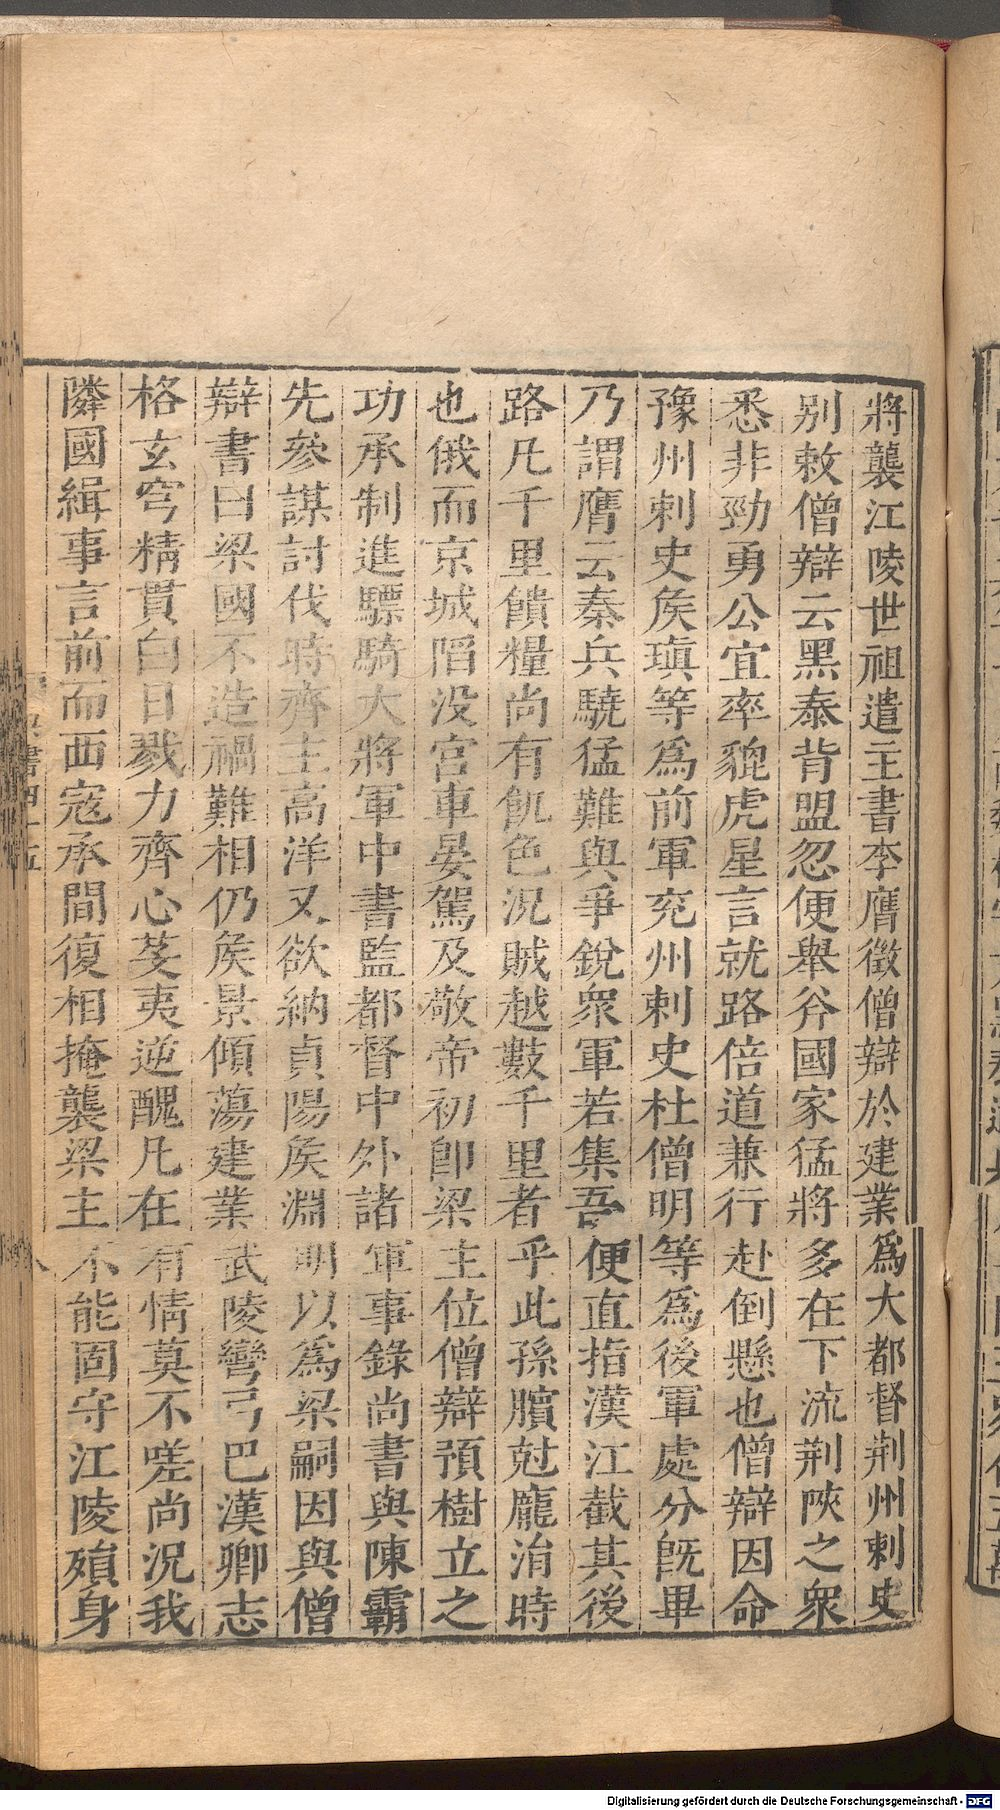 將襲江陵世祖遣主書李膺徵僧辯於建業爲大都督荆州刺史
别敕僧辯云黑泰背盟忽便舉斧國家猛將多在下流荆陝之衆
悉非勁勇公宜率貔虎星言就路倍道兼行赴倒懸也僧辯因命
豫州刺史侯瑱等爲前軍兖州刺史杜僧明等爲後軍處分既畢
乃謂膺云秦兵驍猛難與爭銳衆軍若集吾便直指漢江截其後
路凡千里饋糧尚有飢色況賊越數千里者乎此孫臏尅龐涓時
也俄而京城陷没宮車晏駕及敬帝初卽梁主位僧辯預樹立之
功承制進驃騎大將軍中書監都督中外諸軍事錄尚書與陳霸
先參謀討伐時齊主高洋又欲納貞陽侯淵明以爲梁嗣因與僧
辯書曰梁國不造禍難相仍侯景傾蕩建業武陵彎弓巴漢卿志
格玄穹精貫白日戮力齊心芟夷逆醜凡在有情莫不嗟尚況我
隣國緝事言前而西寇承間復相掩襲梁主不能固守江陵殞身
Digitalisierung gefördert durch die Deutsche Forschungsgemeinschaft - DFG